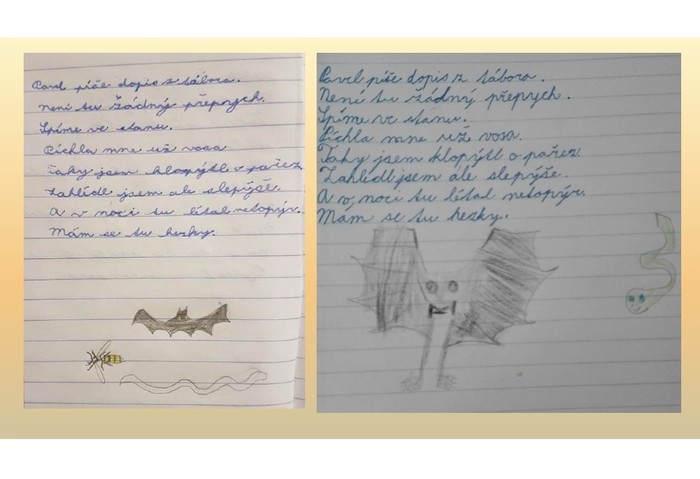 Pavel píše dopis z tábora.
Není tu žádný přepych.
Spíme ve stanu.
Píchla mne už vosa.
Taky jsem klopýtl o pařez.
Zahlédl jsem ale slepýše.
A v noci tu létal netopýr.
Mám se tu hezky.
Pavel píše dopis z tábora.
Není tu žádný přepych.
Spíme ve stanu.
Píchla mne už vosa.
Taky jsem klopýtl o pařez.
Zahlédl jsem ale slepýše.
A v noci tu létal netopýr.
Mám se tu hezky.